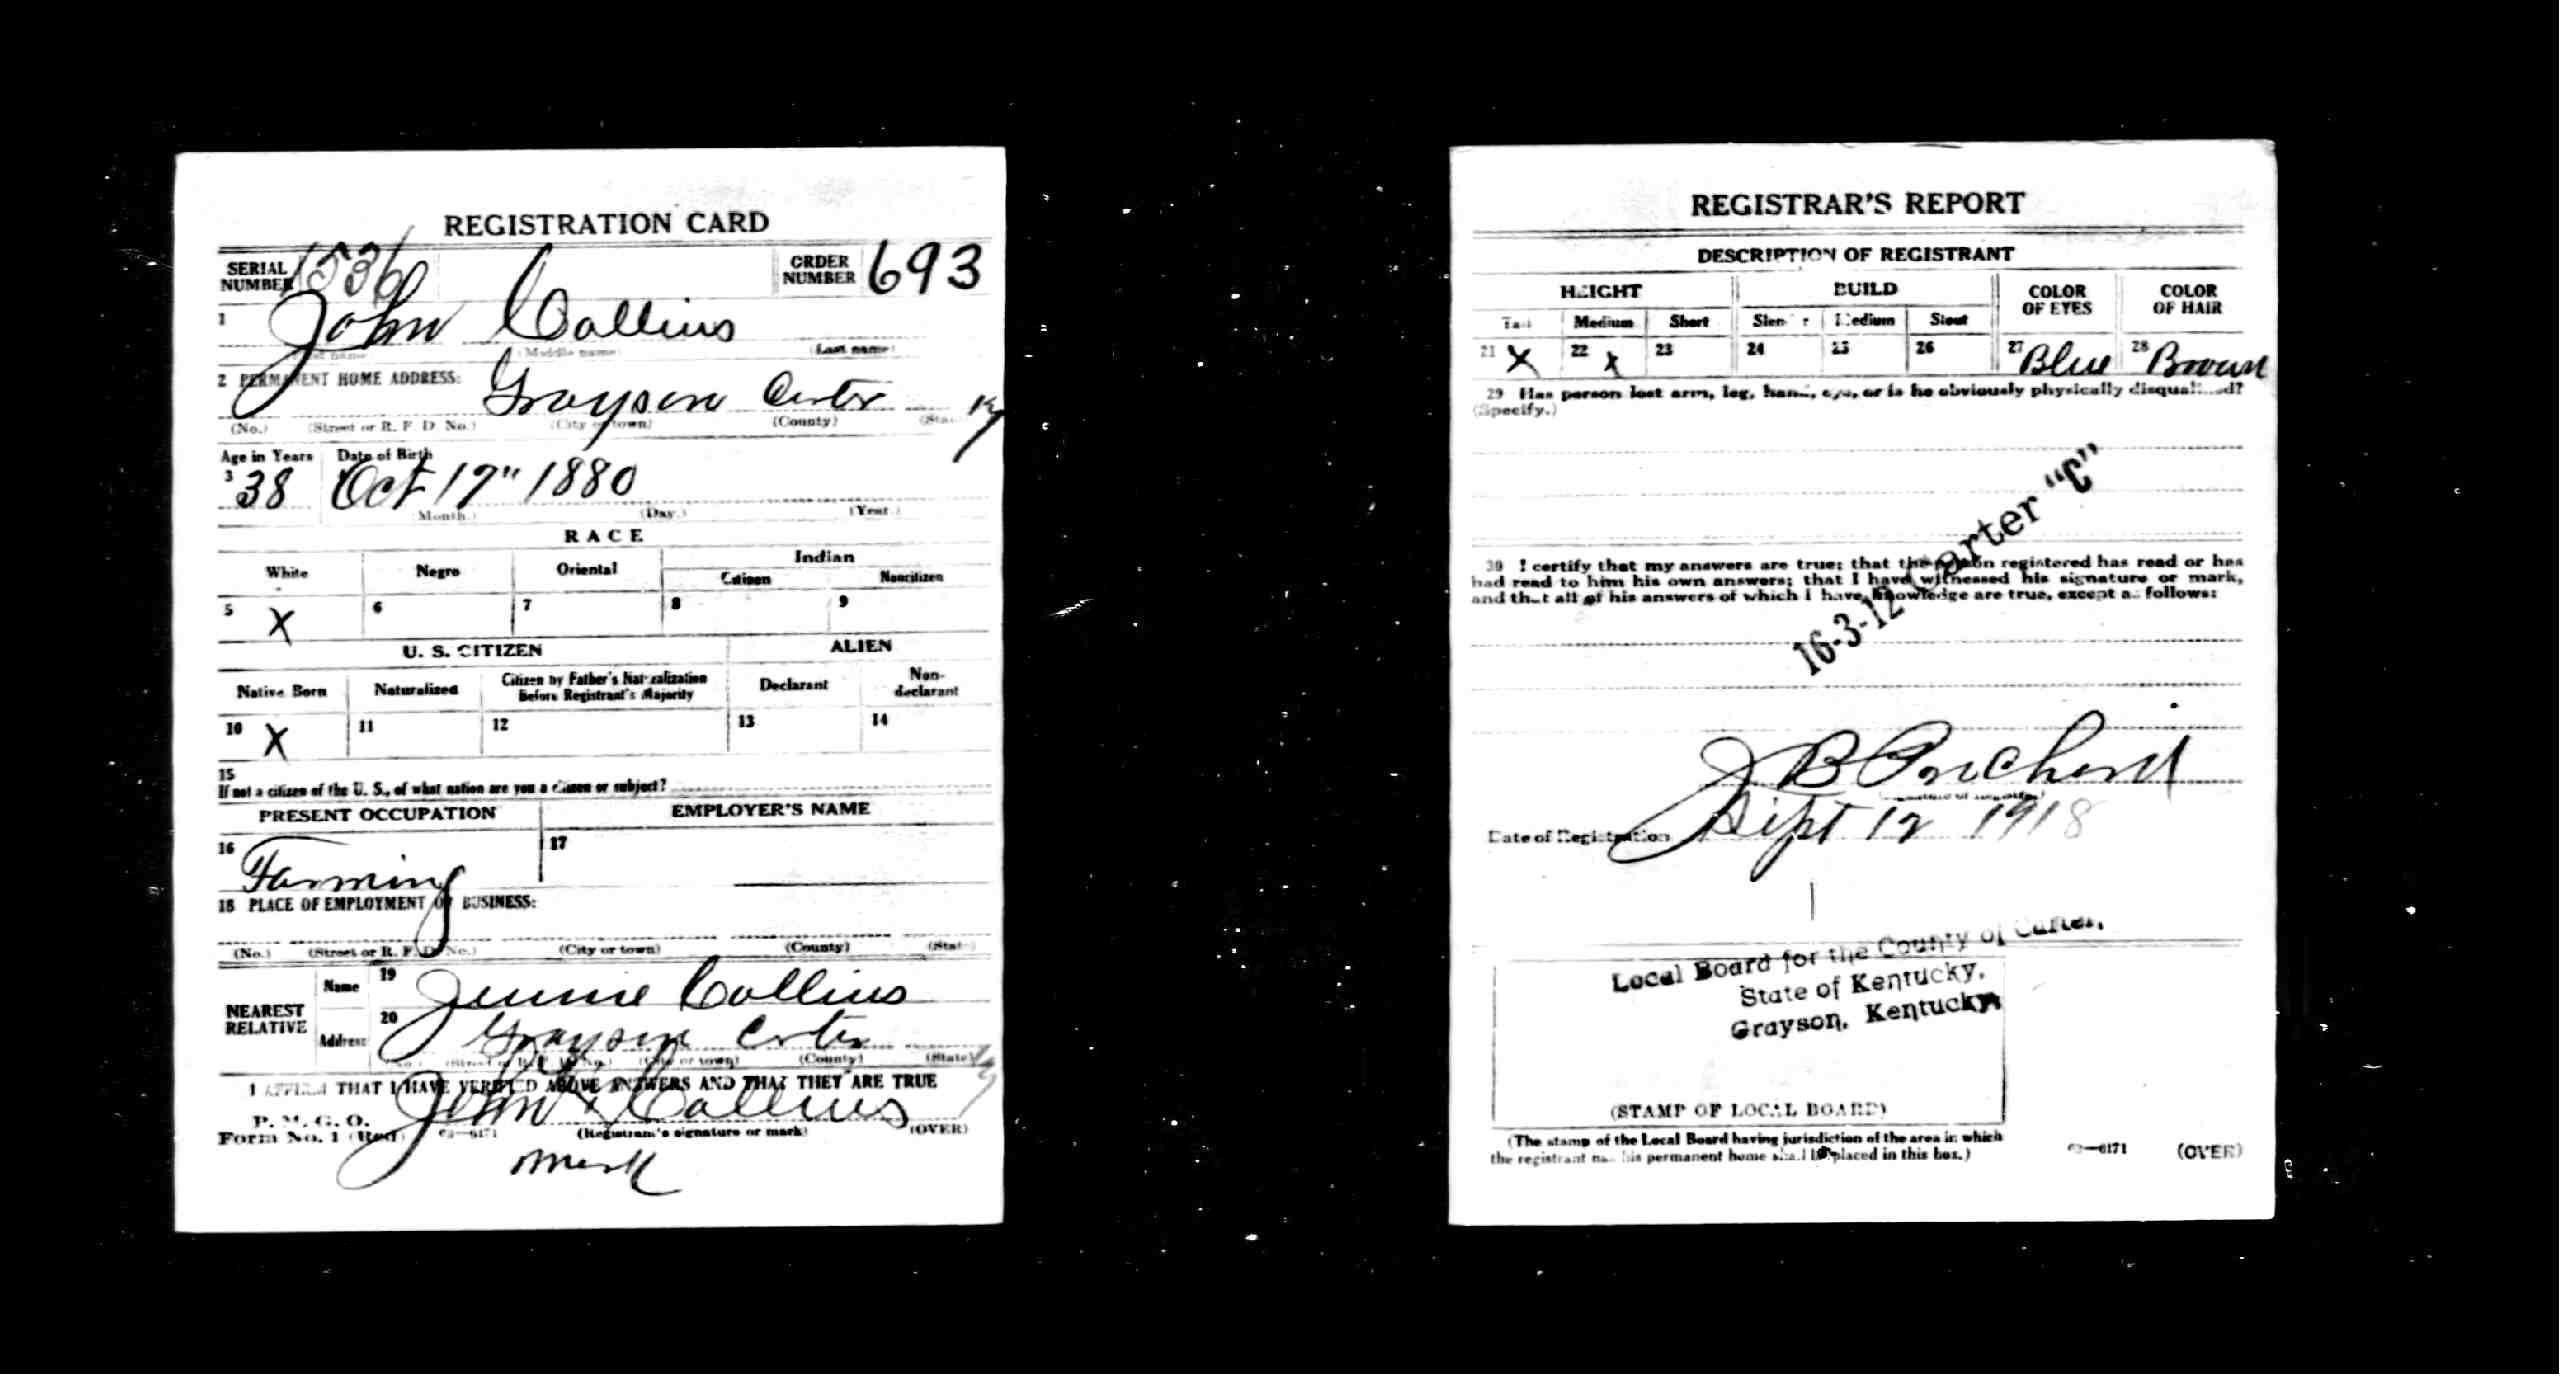 REGISTRATION CARD
SERIAL NUMBER 1536
ORDER NUMBER 693
1 John Collins
(First name) (Middle name) (Last name)
2 PERMANENT HOME ADDRESS:
Grayson Carter Ky
(No.) (Street or R. F. D. No.) (City or town) (County) (State)
Age in Years Date of Birth
3 38 Oct 17" 1880
(Month.) (Day.) (Year.)
RACE
White Negro Oriental Indian
Citizen Noncitizen
5 X 6 7 8 9
U. S. CITIZEN ALIEN
Native Born Naturalized Citizen by Father's Naturalization Before Registrant's Majority Declarant Non-declarant
10 X 11 12 13 14
15
If not a citizen of the U. S., of what nation are you a citizen or subject?
PRESENT OCCUPATION EMPLOYER'S NAME
16 Farming 17
18 PLACE OF EMPLOYMENT OR BUSINESS:
(No.) (Street or R. F. D. No.) (City or town) (County) (State)
NEAREST RELATIVE
Name 19 Jennie Collins
Address 20 Grayson Carter Ky
(No.) (Street or R. F. D. No.) (City or town) (County) (State)
I AFFIRM THAT I HAVE VERIFIED ABOVE ANSWERS AND THAT THEY ARE TRUE
P. M. G. O.
Form No. 1 (Red)
John X Collins
(Registrant's signature or mark) (OVER)
mark
REGISTRAR'S REPORT
DESCRIPTION OF REGISTRANT
HEIGHT BUILD COLOR OF EYES COLOR OF HAIR
Tall Medium Short Slender Medium Stout
21 X 22 x 23 24 25 26 27 Blue 28 Brown
29 Has person lost arm, leg, hand, eye, or is he obviously physically disqualified?
(Specify.)
16-3-12 Carter "C"
30 I certify that my answers are true; that the person registered has read or has
had read to him his own answers; that I have witnessed his signature or mark,
and that all of his answers of which I have knowledge are true, except as follows:
J B
Date of Registration Sept 12 1918
Local Board for the County of Carter,
State of Kentucky,
Grayson, Kentucky.
(STAMP OF LOCAL BOARD)
(The stamp of the Local Board having jurisdiction of the area in which
the registrant has his permanent home shall be placed in this box.)
03—6171 (OVER)